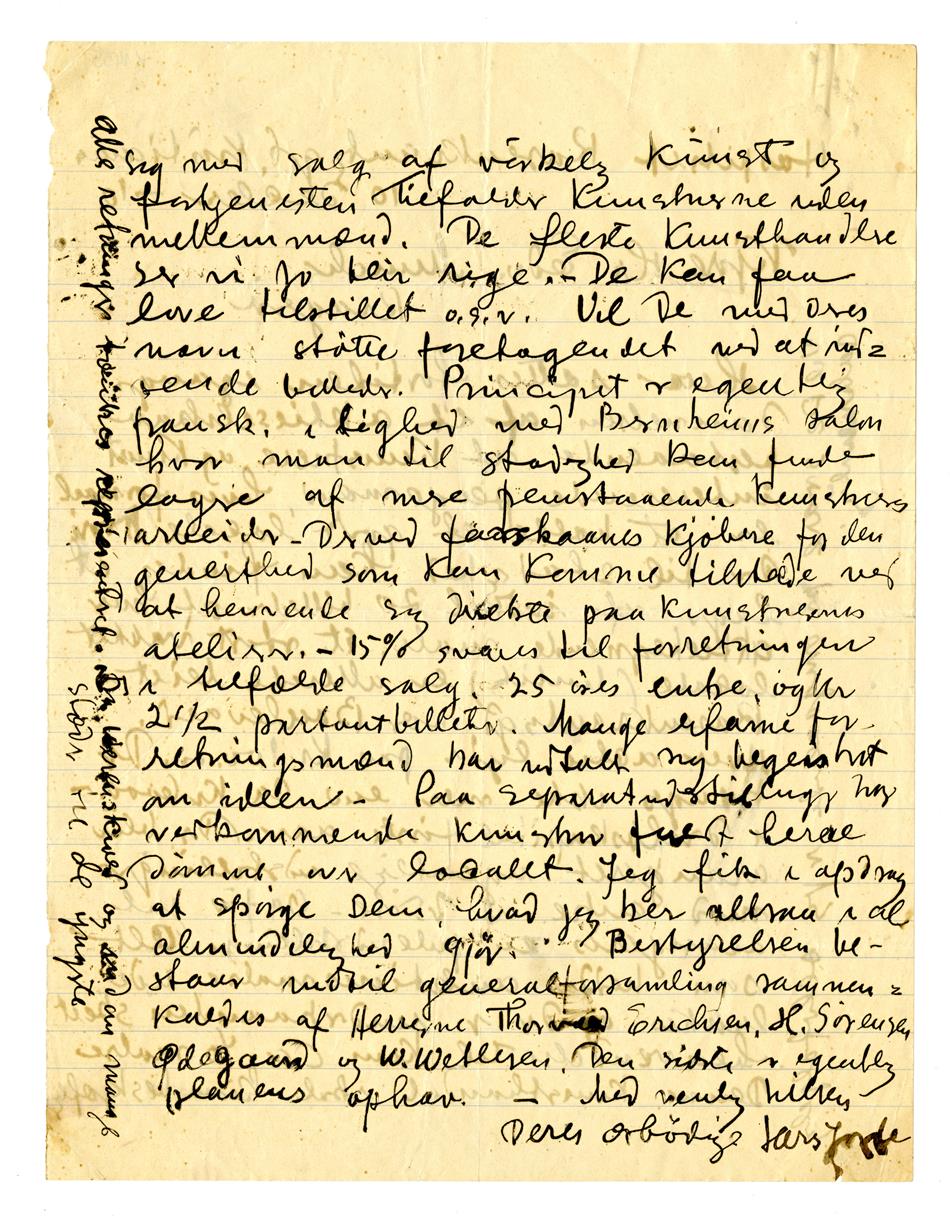 sig med salg af virkelig Kunst og
fortjenesten tilfalder Kunstnerne uden
mellemmænd. De fleste Kunsthandlere
ser vi jo blir rige. – De kan faa
love tilstillet o.s.v. Vil De med Deres
navn støtte foretagendet ved at ind=
sende billeder. Principet er egentlig
fransk, i lighed med Bernheims salon
hvor man til stadighed kan finde
lagre af mere fremstaaende Kunstneres
arbeider – Derved forskaanes Kjøbere for den
generthed som Kan Komme tilstede ved
at henvende sig direkte paa Kunstnernes
atelier. – 15% svares til forretningen
i tilfælde salg. 25 øres entre, og Kr
2 1/2 partoutbillett. Mange erfarne for-
retningsmænd har udtalt sig begeistret
om ideen – Paa separatudstillinger har
vedkommende Kunstner frit herre
dømme over locallt. Jeg fik i opdrag
at spørge Dem, hvad jeg her altsaa i al
almindelighed gjør. Bestyrelsen be-
staar indtil generalforsamling sammen=
kaldes af Herrerne Thorvald Erichsen, H. Sørensen
Ødegaard og W. Wetlesen. Den sidste er egentlig
planens ophav. – Med venlig hilsen
Deres ærbødige Lars Jorde
alle retninger tænkes repræsentert. og om mange
støder til de yngste